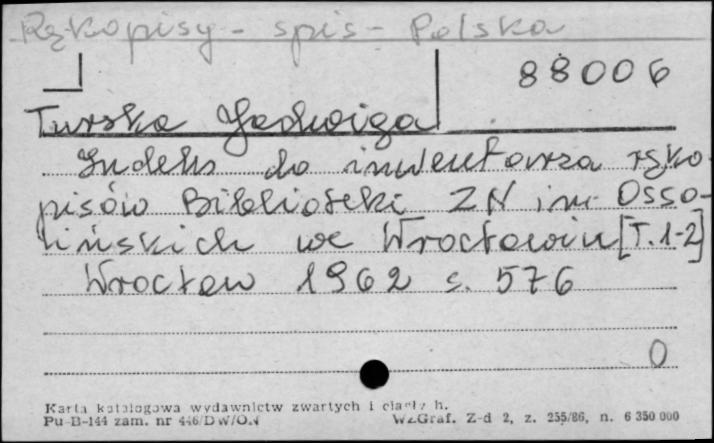 Rękopisy - spis - Polska
88006
Turska Jadwiga
Indeks do inwentarza ręko-
pisów Biblioteki ZN im. Osso-
lińskich we Wrocławiu [T.1-2]
Wrocław 1962 s. 576
0
Karta katalogowa wydawnictw zwartych i ciągłych.
Pu-B-144 zam. nr 446/DW/ON WZGraf. Z-d 2, z. 255/86, n. 6 350 000